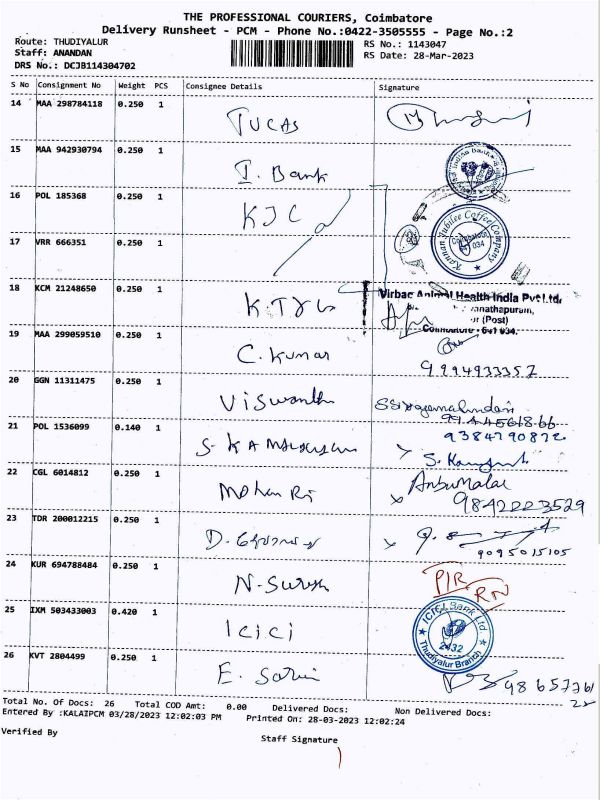 THE PROFESSIONAL COURIERS, Coimbatore
Delivery Runsheet - PCM - Phone No.:0422-3505555 - Page No.:2
Route: THUDIYALUR
Staff: ANANDAN
DRS No.: DCJB114304702
RS No.: 1143047
RS Date: 28-Mar-2023
S No Consignment No Weight PCS Consignee Details Signature
14 MAA 298784118 0.250 1 TUCAS
15 MAA 942930794 0.250 1 I. Bank
16 POL 185368 0.250 1 KJC
Kannan Jubilee Coffee Company
17 VRR 666351 0.250 1
18 KCM 21248650 0.250 1
Virbac Animal Health India Pvt Ltd.
(Post)
Coimbatore - 641 034.
19 MAA 299059510 0.250 1 C. Kumar
9994933357
20 GGN 11311475 0.250 1 Viswanth
21 POL 1536099 0.140 1
9384790872
22 CGL 6014812 0.250 1 Mohan Raj
Anbumalar
9842223529
23 TDR 200012215 0.250 1
9095015105
24 KUR 694788484 0.250 1 N. Suresh
25 IXM 503433003 0.420 1 Icici
ICICI Bank Ltd.
2432
Thudiyalur Branch
26 KVT 2804499 0.250 1
Total No. Of Docs: 26 Total COD Amt: 0.00 Delivered Docs: Non Delivered Docs:
Entered By :KALAIPCM 03/28/2023 12:02:03 PM Printed On: 28-03-2023 12:02:24
Verified By
Staff Signature